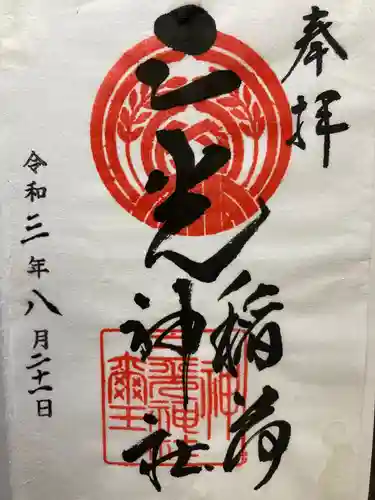 奉拝
三光稲荷
神社
令和三年八月二十一日